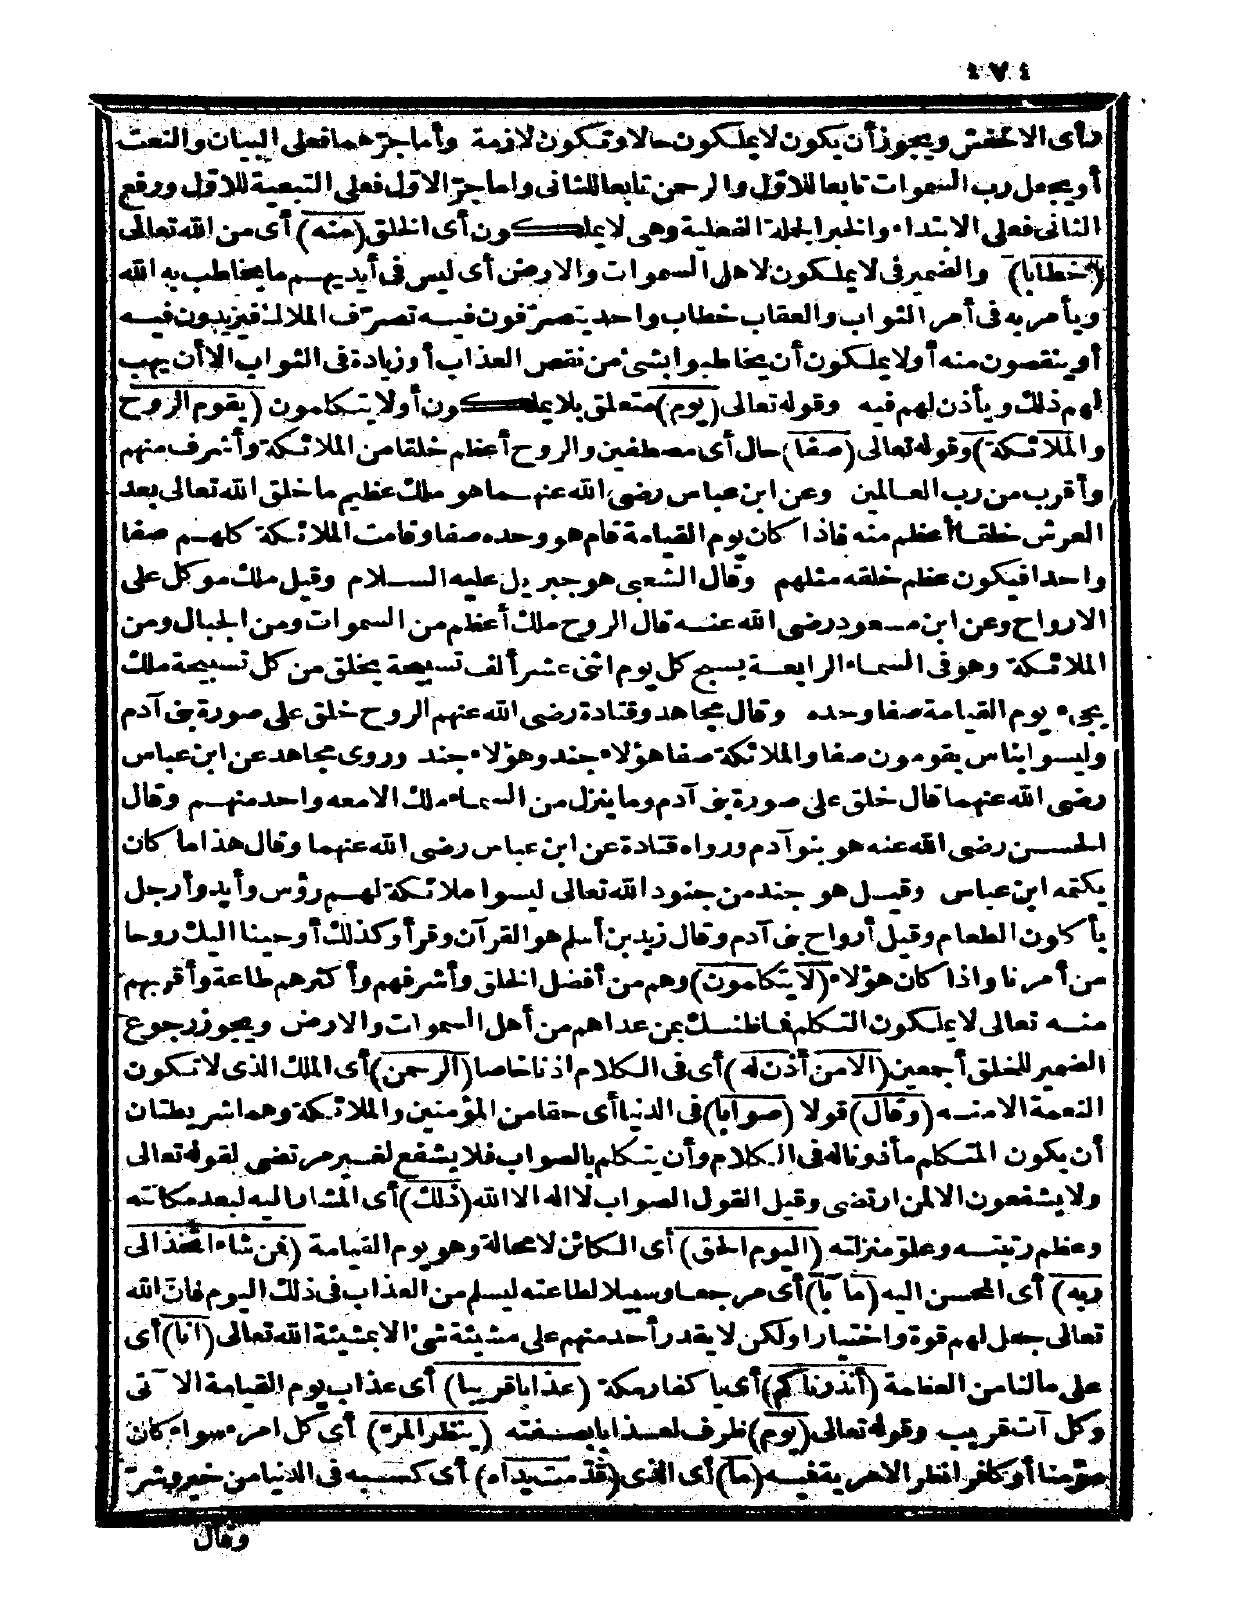 ٤٧٤
رأى الاخفش ويجوز أن يكون لا يملكون حالا وتكون لازمة وأما جرّهما فعلى البيان والنعت
أو يجعل رب السموات تابعا للاوّل والرحمن تابعا للثانى وأما جرّ الاوّل فعلى التبعية للاوّل ورفع
الثانى فعلى الابتداء والخبر الجملة الفعلية وهى لا يملكون أى الخلق (منه) أى من الله تعالى
(خطابا) والضمير فى لا يملكون لاهل السموات والارض أى ليس فى أيديهم ما يخاطب به الله
ويأمر به فى أمر الثواب والعقاب خطاب واحد يتصرّفون فيه تصرّف الملاك فيزيدون فيه
أو ينقصون منه أولا يملكون أن يخاطبوا بشئ من نقص العذاب أو زيادة فى الثواب الا أن يهب
لهم ذلك ويأذن لهم فيه وقوله تعالى (يوم) متعلق بلا يملكون أو لا يتكلمون (يقوم الروح
والملائكة) وقوله تعالى (صفا) حال أى مصطفين والروح أعظم خلقا من الملائكة وأشرف منهم
وأقرب من رب العالمين وعن ابن عباس رضى الله عنهما هو ملك عظيم ما خلق الله تعالى بعد
العرش خلقا أعظم منه فاذا كان يوم القيامة قام هو وحده صفا وقامت الملائكة كلهم صفا
واحدا فيكون عظم خلقه مثلهم وقال الشعبى هو جبريل عليه السلام وقيل ملك موكل على
الارواح وعن ابن مسعود رضى الله عنه قال الروح ملك أعظم من السموات ومن الجبال ومن
الملائكة وهو فى السماء الرابعة يسبح كل يوم اثنى عشر ألف تسبيحة يخلق من كل تسبيحة ملك
يجىء يوم القيامة صفا وحده وقال مجاهد وقتادة رضى الله عنهم الروح خلق على صورة بنى آدم
وليسوا بناس يقومون صفا والملائكة صفا هؤلاء جند وهؤلاء جند وروى مجاهد عن ابن عباس
رضى الله عنهما قال خلق على صورة بنى آدم وما ينزل من السماء ملك الا معه واحد منهم وقال
الحسن رضى الله عنه هو بنو آدم ورواه قتادة عن ابن عباس رضى الله عنهما وقال هذا ما كان
يكتمه ابن عباس وقيل هو جند من جنود الله تعالى ليسوا ملائكة لهم رؤس وأيد وأرجل
يأكلون الطعام وقيل أرواح بنى آدم وقال زيد بن أسلم هو القرآن وقرأ وكذلك أوحينا اليك روحا
من أمرنا واذا كان هؤلاء (لا يتكلمون) وهم من أفضل الخلق وأشرفهم وأكثرهم طاعة وأقربهم
منه تعالى لا يملكون التكلم فما ظنك بمن عداهم من أهل السموات والارض ويجوز رجوع
الضمير للخلق أجمعين (الا من أذن له) أى فى الكلام اذنا خاصا (الرحمن) أى الملك الذى لا تكون
النعمة الا منه (وقال) قولا (صوابا) فى الدنيا أى حقا من المؤمنين والملائكة وهما شريطتان
أن يكون المتكلم مأذونا له فى الكلام وأن يتكلم بالصواب فلا يشفع لغير مرتضى لقوله تعالى
ولا يشفعون الا لمن ارتضى وقيل القول الصواب لا اله الا الله (ذلك) أى المشار اليه لبعد مكانته
وعظم رتبته وعلوّ منزلته (اليوم الحق) أى الكائن لا محالة وهو يوم القيامة (فمن شاء اتخذ الى
ربه) أى المحسن اليه (مآبا) أى مرجعا وسبيلا لطاعته ليسلم من العذاب فى ذلك اليوم فانّ الله
تعالى جعل لهم قوة واختيارا ولكن لا يقدر أحد منهم على مشيئة شئ الا بمشيئة الله تعالى (انا) أى
على مالنا من العظمة (أنذرناكم) أى يا كفار مكة (عذابا قريبا) أى عذاب يوم القيامة الآتى
وكل آت قريب وقوله تعالى (يوم) ظرف لعذابا بصفته (ينظر المرء) أى كل امرء سواء كان
مؤمنا أو كافرا نظرا لا مرية فيه (ما) أى الذى (قدّمت يداه) أى كسبه فى الدنيا من خير وشرّ
وقال